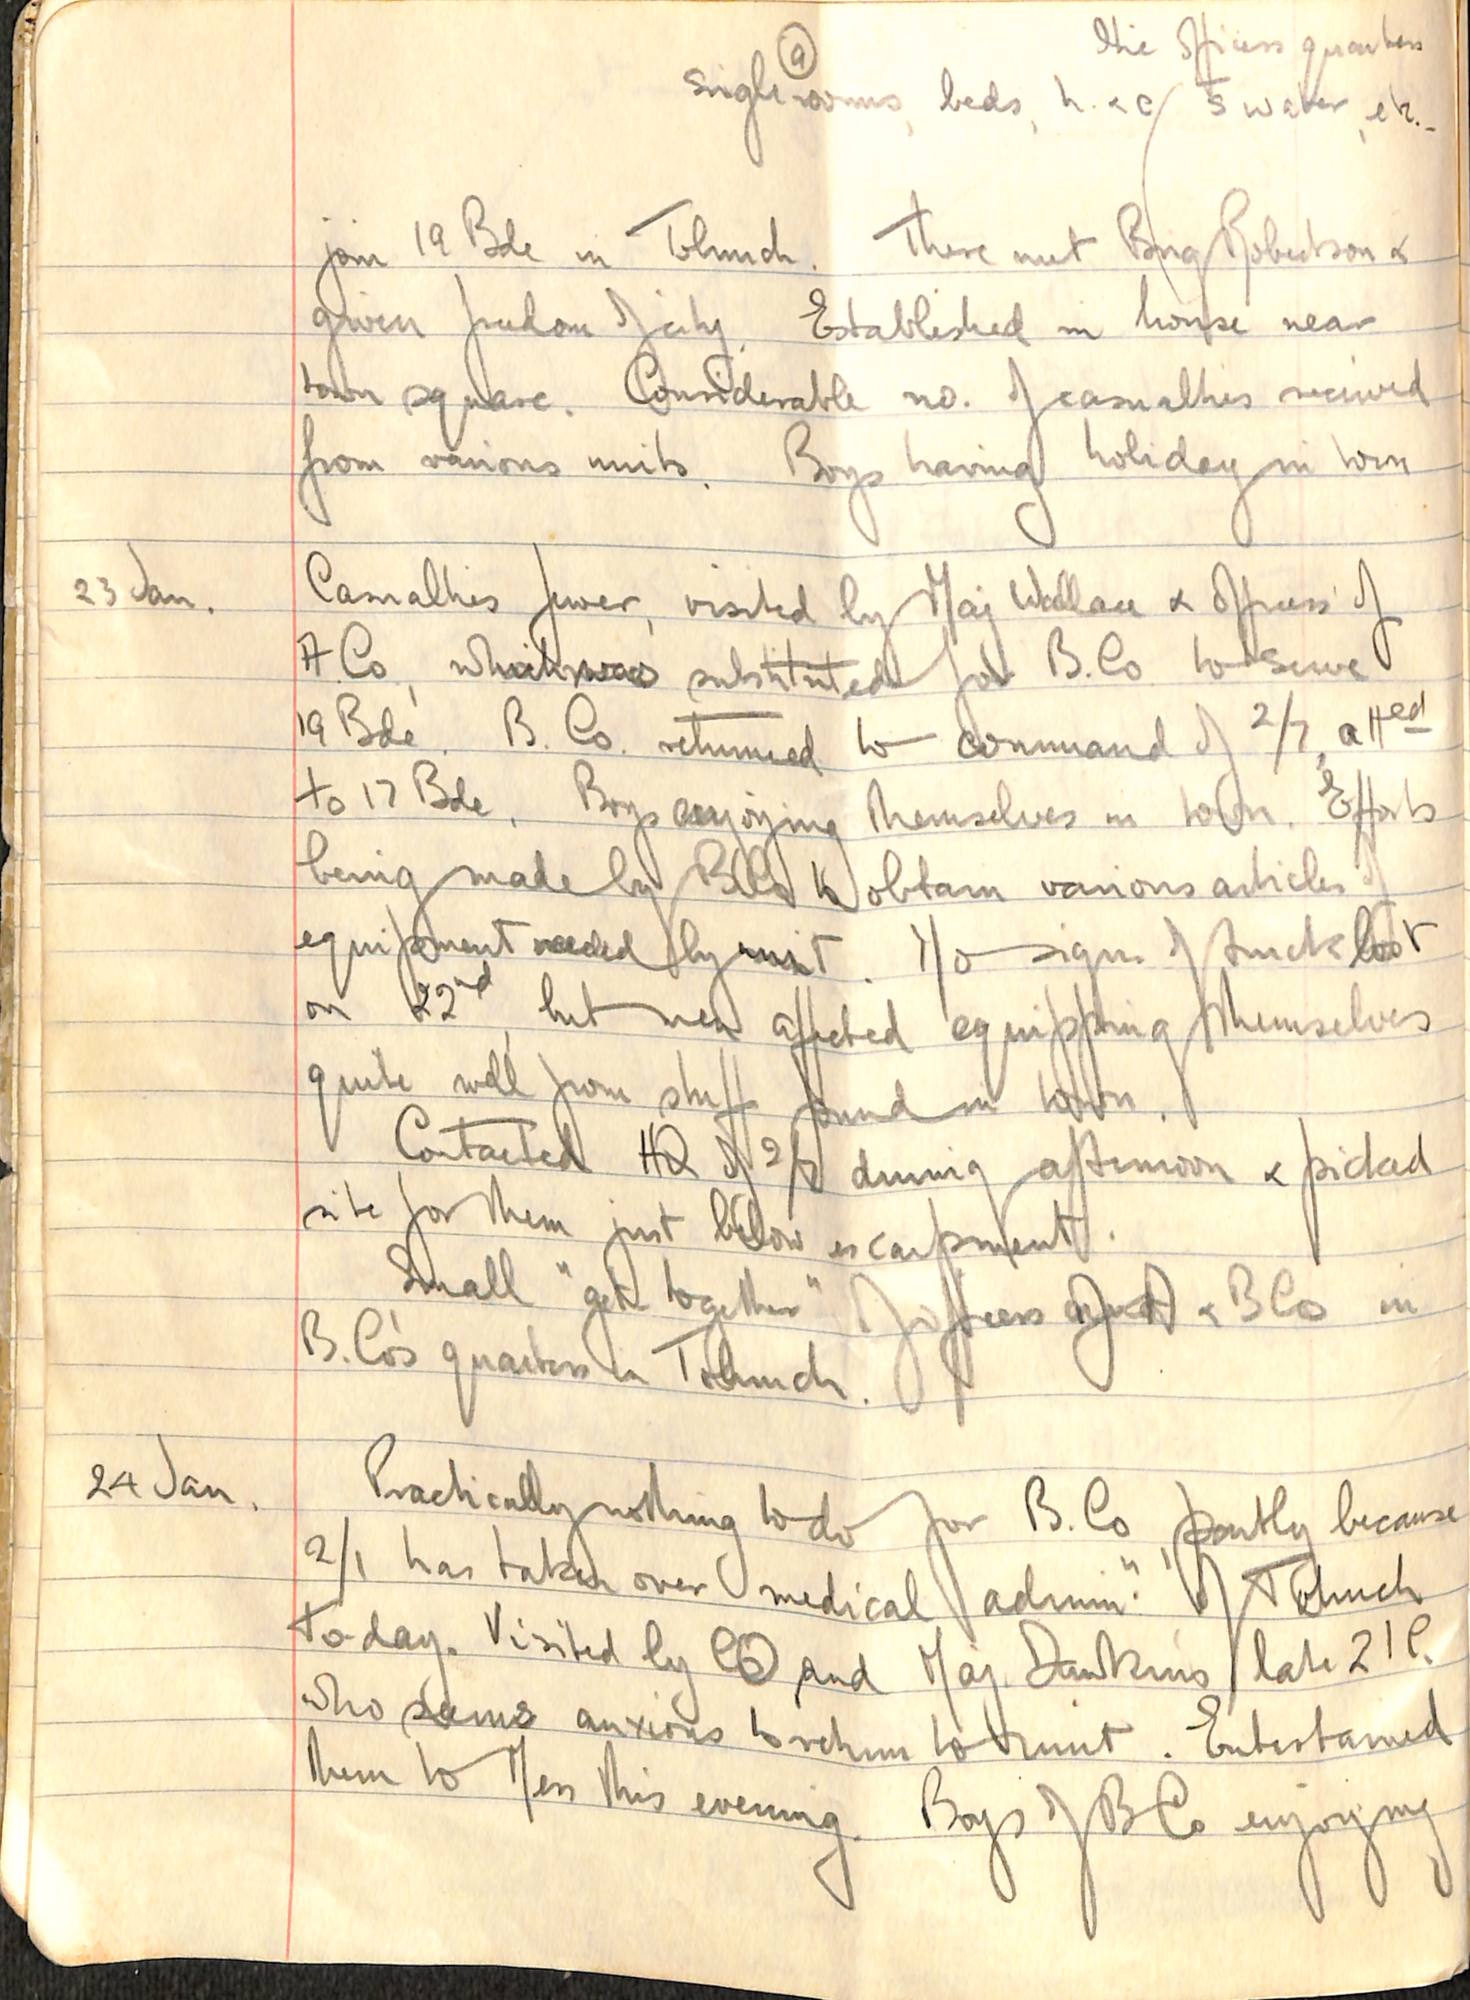 9
the officers quarters
single rooms, beds, h. & c water, etc.
join 19 Bde in Tobruch. There met Brig Robertson &
given freedom of city. Established in house near
town square. Considerable no. of casualties received
from various units. Boys having holiday in town
23 Jan. Casualties fewer, visited by Maj Wallace & officers of
A Co, which was substituted for B. Co to serve
19 Bde. B. Co. returned to command of 2/7, atted
to 17 Bde. Boys enjoying themselves in town. Efforts
being made by B Co to obtain various articles of
equipment needed by unit. No sign of truck lost
on 22nd, but men affected equipping themselves
quite well from stuff found in town.
Contacted HQ of 2/7 during afternoon & picked
site for them just below escarpment.
Small "get together" of officers of A & B Co in
B. Co's quarters in Tobruch.
24 Jan. Practically nothing to do for B. Co, partly because
2/1 has taken over medical admin. of Tobruch
to-day. Visited by CO and Maj. Dawkins, late 2 I C.
who seems anxious to return to unit. Entertained
them to Mess this evening. Boys of B Co enjoying